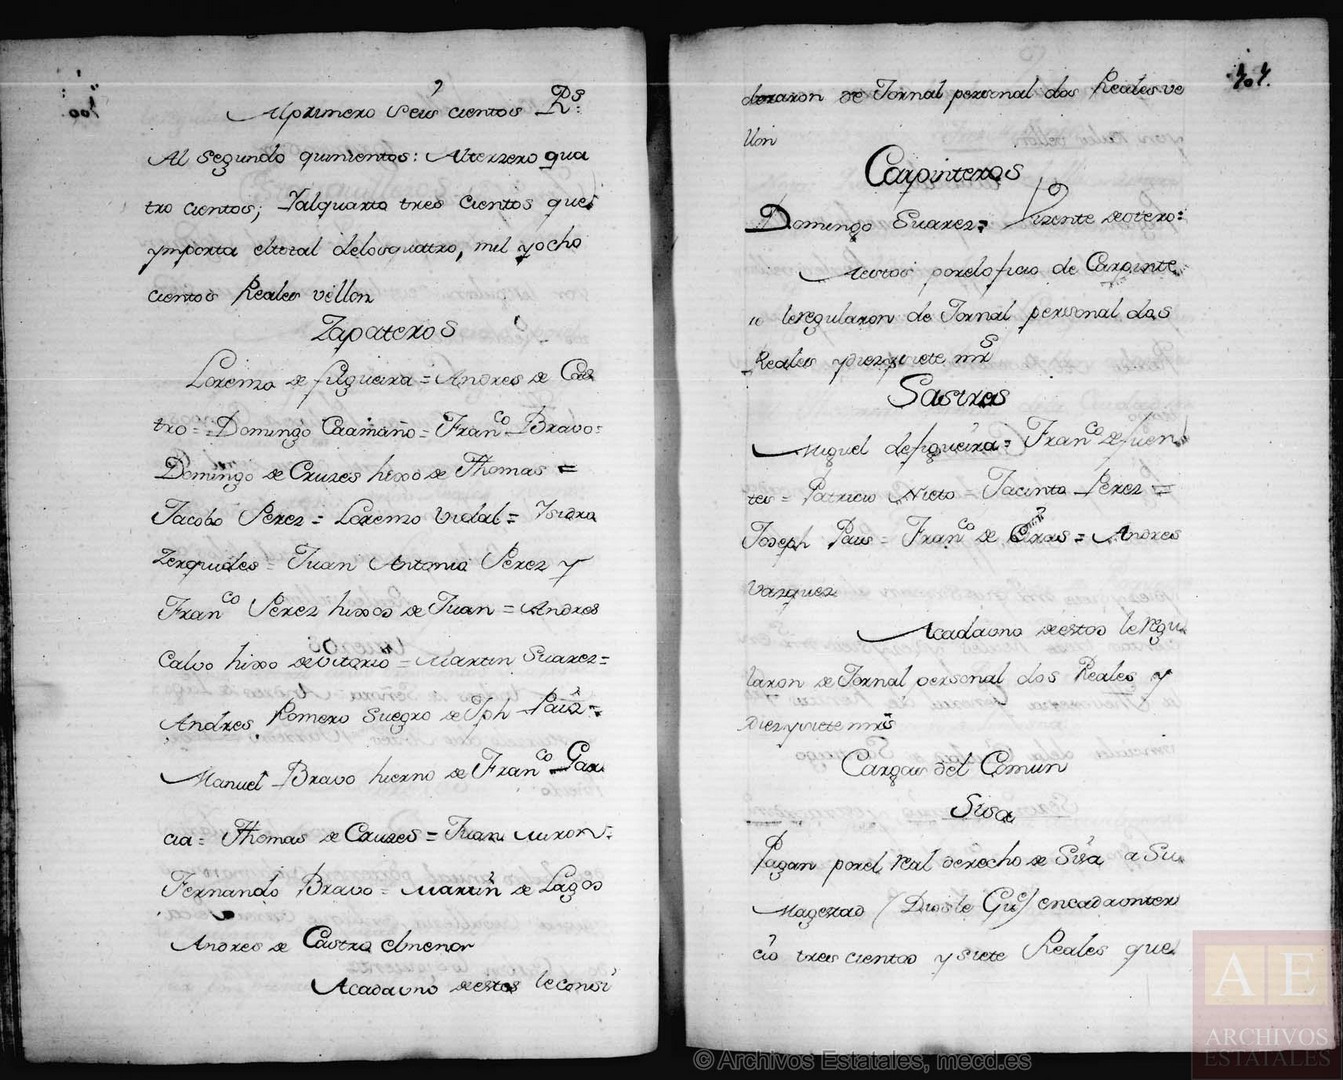 Alprimero Seis cientos R.s
Al segundo quinientos: Alterzero qua
tro cientos; Yalquarto tres cientos que
ymporta eltotal delosquatro, mil yocho
cientos Reales vellon
Zapateros
Lorenzo de filgueira = Andres de Cas
tro = Domingo Caamaño = Fran.co Bravo =
Domingo de Cruzes hixo de Thomas =
Jacobo Perez = Lorenzo Vidal = Ysidro
Zerquides = Juan Antonio Perez y
Fran.co Perez hixos de Juan = Andres
Calvo hixo de Vitorio = Martin Suarez =
Andres Romero Suegro de Jph Paùs =
Manuel Bravo hierno de Fran.co Gar
cia = Thomas de Cruzes = Juan Miron =
Fernando Bravo = Martin de Lagos
Andres de Castro elmenor
Acadauno destos leconsi
707.
deraron de Jornal personal dos Reales ve
llon
Carpinteros
Domingo Suarez = Vizente deotero =
Aestos porelofizio de Carpinte
leregularon de Jornal personal dos
Reales ydiezysiete mrs
Sastres
Miguel defigueira = Fran.co defuen
tes = Patricio Nieto = Jacinto Perez =
Joseph Paus = Fran.co de Eiras = Andres
Vazquez
Acadauno destos leregu
laron de Jornal personal dos Reales y
Diezysiete mrs
Cargas del Comun
Sisa
Pagan porel real derecho de Sisa a Su
Magestad (Diosle Gue) encadaonter
cio tres cientos y siete Reales que
AE
ARCHIVOS
ESTATALES
© Archivos Estatales, mecd.es